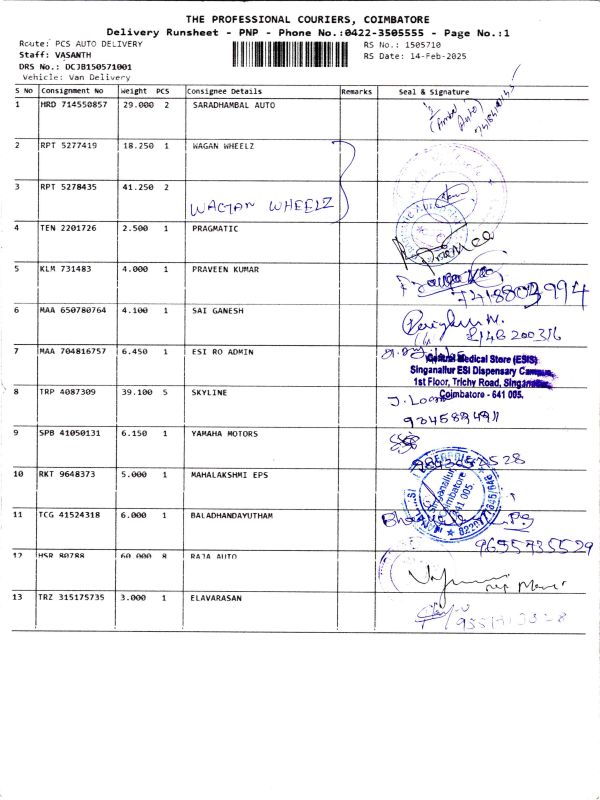 THE PROFESSIONAL COURIERS, COIMBATORE
Delivery Runsheet - PNP - Phone No.:0422-3505555 - Page No.:1
Route: PCS AUTO DELIVERY RS No.: 1505710
Staff: VASANTH RS Date: 14-Feb-2025
DRS No.: DCJB150571001
Vehicle: Van Delivery
S No Consignment No Weight PCS Consignee Details Remarks Seal & Signature
1 HRD 714550857 29.000 2 SARADHAMBAL AUTO
(Ambal Auto)
2 RPT 5277419 18.250 1 WAGAN WHEELZ
3 RPT 5278435 41.250 2
WAGAN WHEELZ
4 TEN 2201726 2.500 1 PRAGMATIC
5 KLM 731483 4.000 1 PRAVEEN KUMAR
7418803994
6 MAA 650780764 4.100 1 SAI GANESH
7 MAA 704816757 6.450 1 ESI RO ADMIN
Central Medical Store (ESIS)
Singanallur ESI Dispensary Campus,
1st Floor, Trichy Road, Singanallur,
Coimbatore - 641 005.
8 TRP 4087309 39.100 5 SKYLINE
9 SPB 41050131 6.150 1 YAMAHA MOTORS
10 RKT 9648373 5.000 1 MAHALAKSHMI EPS
Singanallur
Coimbatore
641 005.
11 TCG 41524318 6.000 1 BALADHANDAYUTHAM
9655735529
12 HSR 80788 60.000 8 RAJA AUTO
13 TRZ 315175735 3.000 1 ELAVARASAN